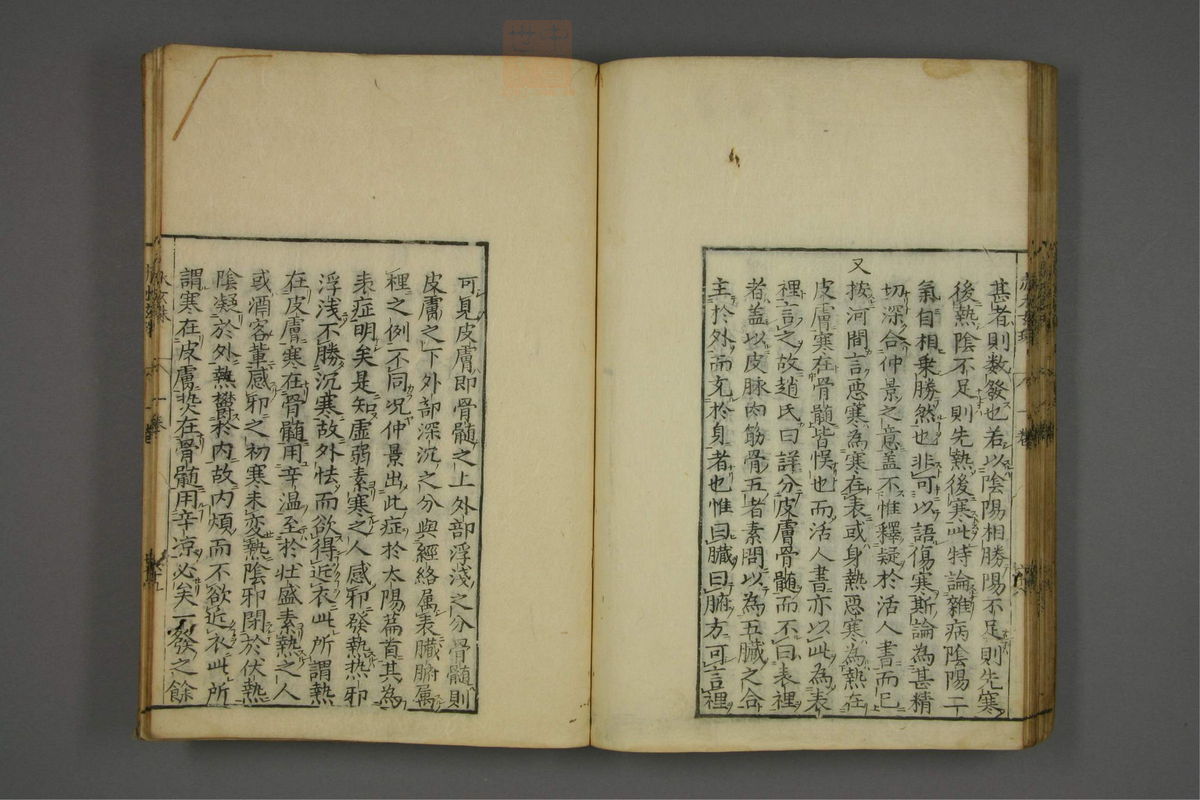 甚者則数發也若以陰陽相勝陽不足則先寒
後熱陰不足則先熱後寒此特論雜病陰陽二
氣自相乗勝然也非可以語傷寒斯論為甚精
切深合仲景之意盖不惟釋疑於活人書而已
又按河間言惡寒為寒在表或身熱惡寒為熱在
皮膚寒在骨髓皆悮也而活人書亦以此為表
裡言之故趙氏曰謹分皮膚骨髓而不曰表裡
者盖以皮脉肉筋骨五者素問以為五臟之合
主於外而充於身者也惟曰臟曰腑方可言裡
可見皮膚即骨髓之上外部浮淺之分骨髓則
皮膚之下外部深沉之分與經絡属表臟腑属
裡之例不同况仲景出此症於太陽篇首其為
表症明矣是知虚弱素寒之人感邪發熱热邪
浮浅不勝沉寒故外怯而欲得近衣此所謂熱
在皮膚寒在骨髓用辛温至於壮盛素熱之人
或酒客輩感邪之初寒未変熱陰邪閉於伏熱
陰凝於外熱欝於内故内煩而不欲近衣此所
謂寒在皮膚热在骨髓用辛凉必矣一發之餘